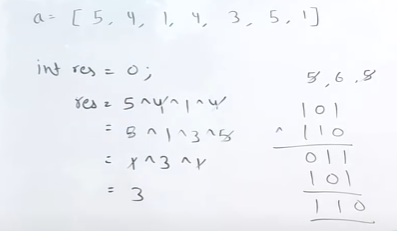 a = [ 5, 4, 1, 4, 3, 5, 1 ]
int res = 0;
res = 5 ^ 4 ^ 1 ^ 4
= 5 ^ 1 ^ 3 ^ 5
= 1 ^ 3 ^ 1
= 3
5, 6, 5
101
^ 110
011
101
110